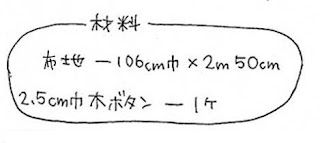 材料
布地 ー 106cm巾 × 2m 50cm
2.5cm巾木ボタン ー 1ケ